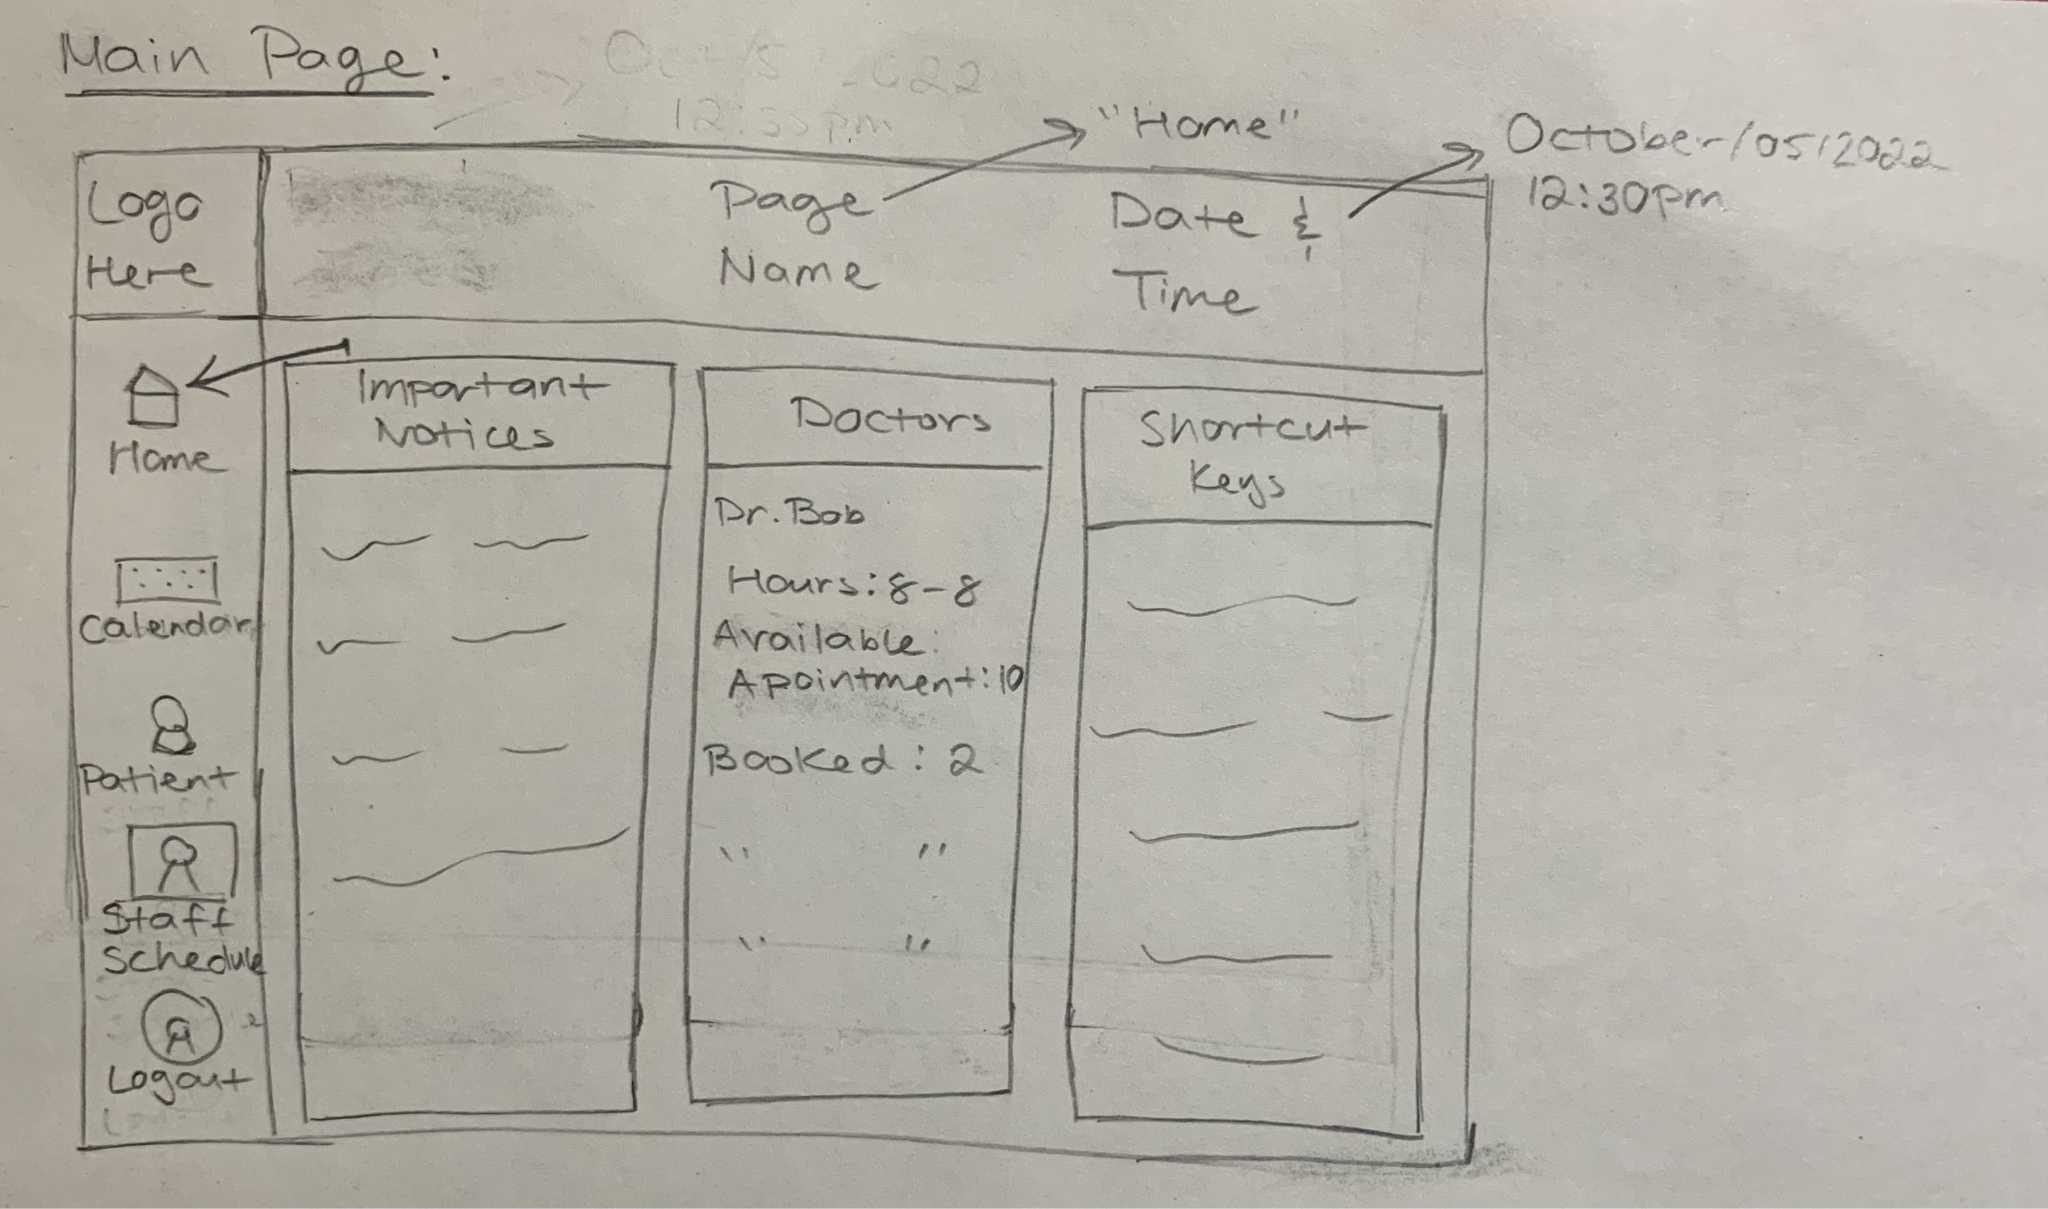 Main Page:
"Home"
October/05/2022
12:30pm
Logo
Here
Page
Name
Date &
Time
Home
Calendar
Patient
Staff
Schedule
Logout
Important
Notices
Doctors
Dr. Bob
Hours: 8-8
Available:
Apointment: 10
Booked: 2
" "
" "
Shortcut
Keys